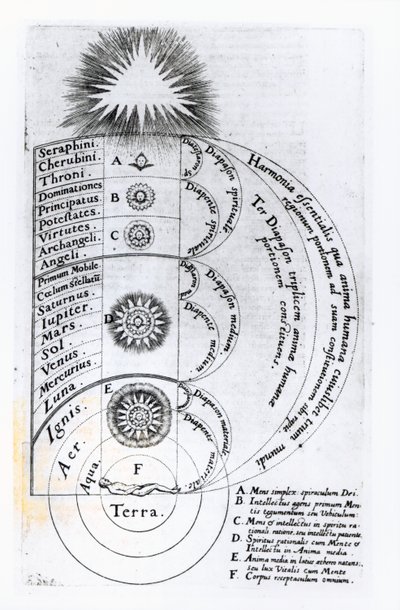 Seraphini.
Cherubini.
Throni.
Dominationes
Principatus.
Potestates.
Virtutes.
Archangeli.
Angeli.
Primum Mobile
Cœlum stellatū
Saturnus.
Iupiter.
Mars.
Sol.
Venus.
Mercurius.
Luna.
Ignis.
Aer.
Aqua.
Terra.
A
B
C
D
E
F
Diapason spirituale
Diapente spirituale
Diapason medium
Diapente medium
Diapason materiale
Diapente materiale
Harmonia essentialis qua anima humana cuiuslibet trium mundi
regionum portionem ad suam constitutionem sibi rapit
Ter Diapason triplicem animæ humanæ
portionem constituens.
A. Mens simplex, spiraculum Dei.
B. Intellectus agens primum Men-
tis tegumentum seu Vehiculum.
C. Mens & intellectus in spiritu ra-
tionali ratione, seu intellectu patiente.
D. Spiritus rationalis cum Mente &
Intellectu in Anima media.
E. Anima media in latice æthereo natans,
seu lux Vitalis cum Mente
F. Corpus receptaculum omnium.